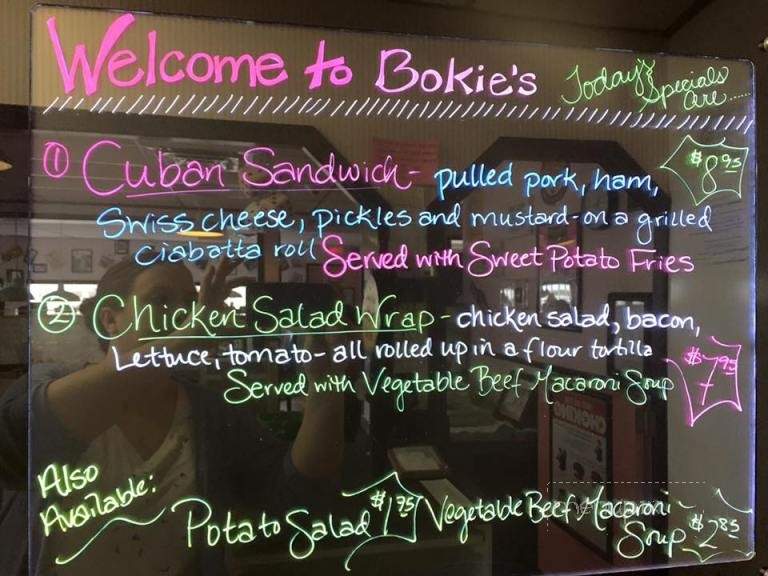 Welcome to Bokie's Today's Specials are.....
① Cuban Sandwich - pulled pork, ham, $8.95
Swiss cheese, pickles and mustard - on a grilled
ciabatta roll Served with Sweet Potato Fries
② Chicken Salad Wrap - chicken salad, bacon,
Lettuce, tomato - all rolled up in a flour tortilla $7.95
Served with Vegetable Beef Macaroni Soup
Also
Available:
Potato Salad $1.75 Vegetable Beef Macaroni
Soup $2.85